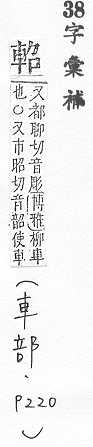 38字彙補
軺
又都聊切音彫博雅柳車
也○又市昭切音韶使車
(車部、P220)